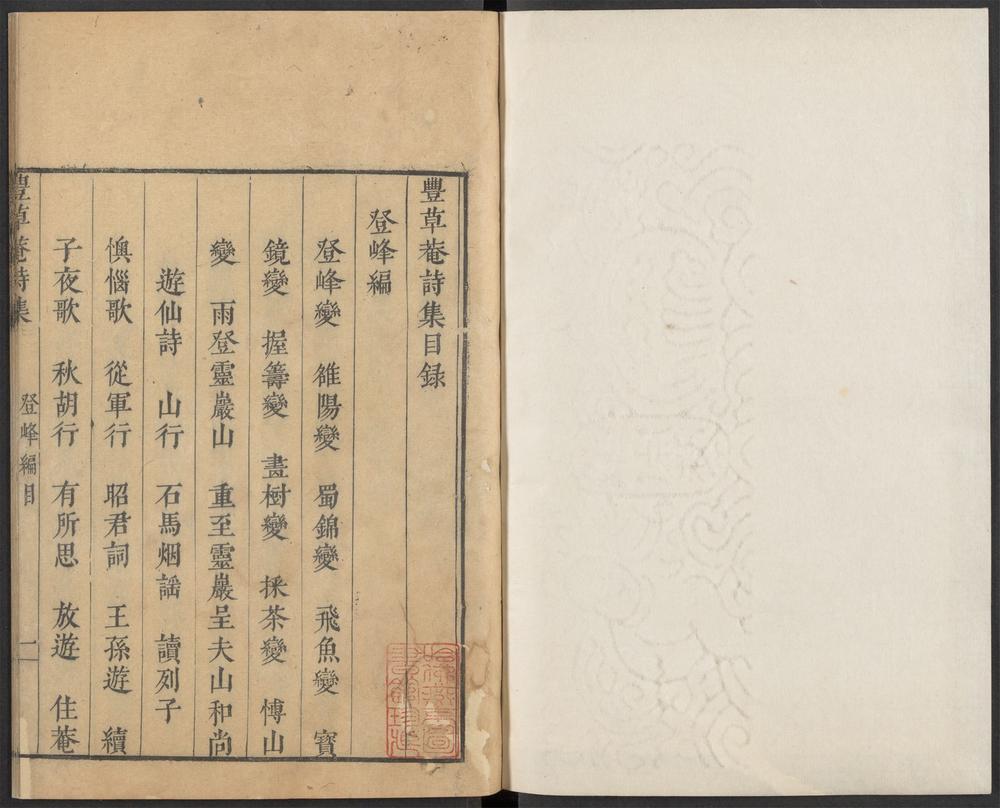 豐草菴詩集目録
登峰編
登峰變 雒陽變 蜀錦變 飛魚變 寶
鏡變 握籌變 畫樹變 採茶變 慱山
變 雨登靈巖山 重至靈巖呈夫山和尚
遊仙詩 山行 石馬烟謡 讀列子
懊惱歌 從軍行 昭君詞 王孫遊 續
子夜歌 秋胡行 有所思 放遊 住菴
豐草菴詩集 登峰編目 一
哈佛燕京圖
書館珍藏